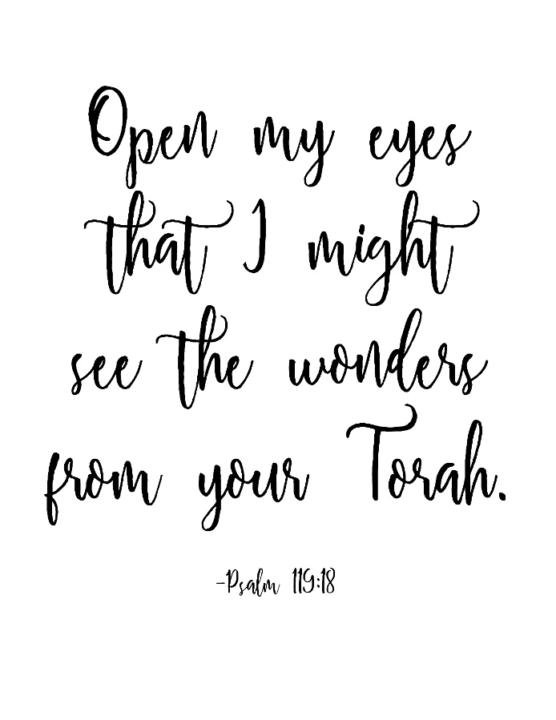 Open my eyes
that I might
see the wonders
from your Torah.
-Psalm 119:18